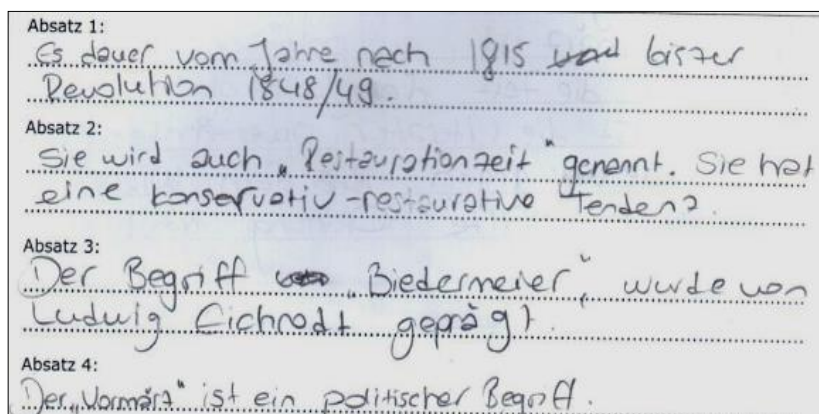 Absatz 1:
Es dauer vom Jahre nach 1815 bis zur
Revolution 1848/49.
Absatz 2:
Sie wird auch „Restaurationzeit" genannt. Sie hat
eine konservativ-restaurative Tendenz.
Absatz 3:
Der Begriff „Biedermeier", wurde von
Ludwig Eichrodt geprägt.
Absatz 4:
Der „Vormärz" ist ein politischer Begriff.